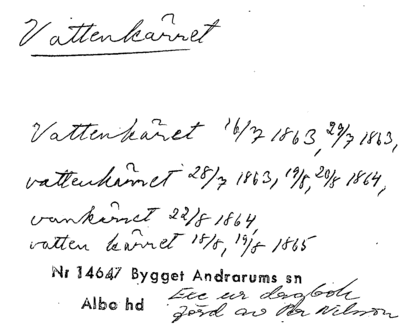 Vattenkärret
Vattenkäret 16/7 1863, 29/7 1863,
vattenkärret 28/7 1863, 19/8, 20/8 1864,
vankärret 22/8 1864,
vatten kärret 18/8, 19/8 1865
Nr 14647 Bygget Andrarums sn
Albo hd
Exc ur dagbok
förd av Per Nilsson